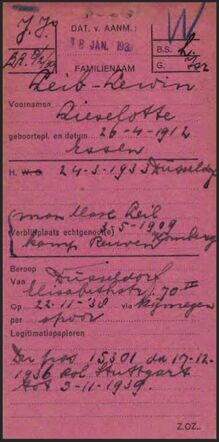 J. J.
DAT. v. AANM.:
18 JAN. 193
B.S.
G. Isr
FAMILIENAAM
Leib-Lewin
Voornamen
Lieselotte
geboortepl. en datum 26-4-1912
Essen
H. W G 24-3-1933 Düsseldorf
man Leib
5-1909
Verblijfplaats echtgenoot(e)
kamp
Beroep
Van Düsseldorf
Elisabethstr. 70 II
Op 22-11-'38 via Nijmegen
per spoor
Legitimatiepapieren
Dui pas 15301 dd 17-12-
1936 Stuttgart
tot 3-11-1939.
Z.OZ.